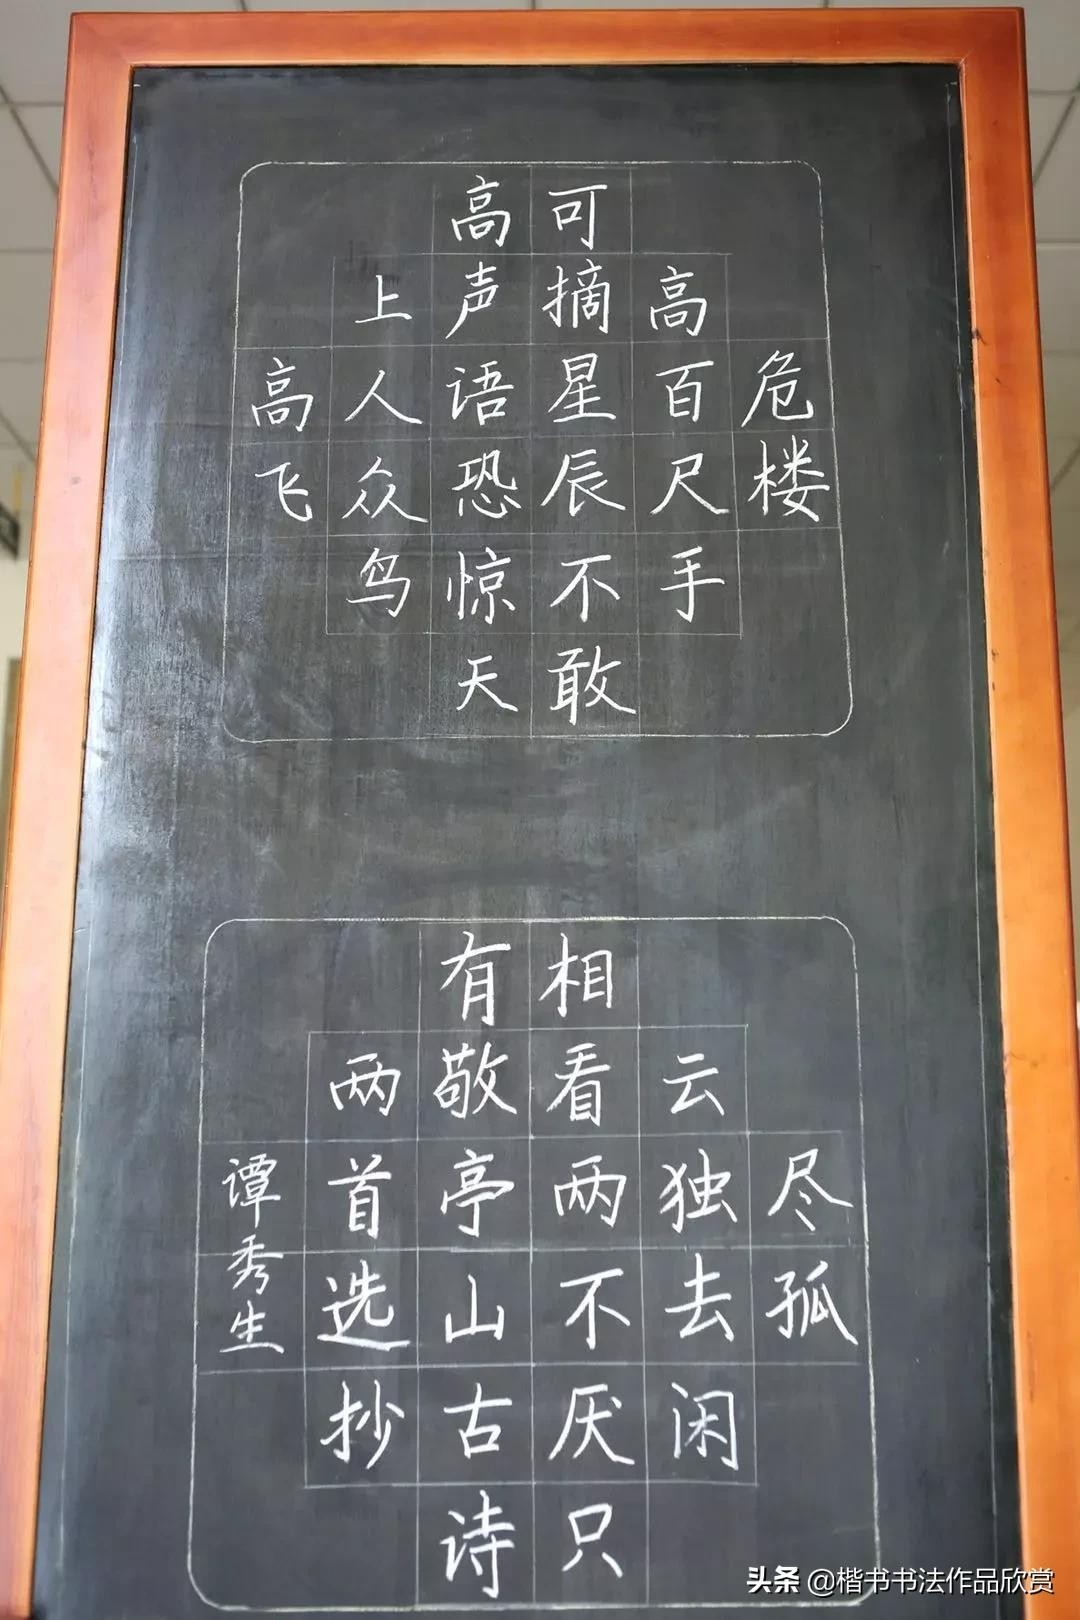 危楼
高百尺手
可摘星辰不敢
高声语恐惊天
上人众鸟
高飞
尽孤
云独去闲
相看两不厌只
有敬亭山古诗
两首选抄
谭秀生
头条 @楷书书法作品欣赏